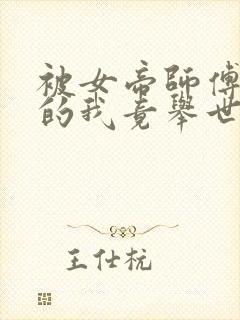 被女帝師傅
的我竟舉世
王仕杭